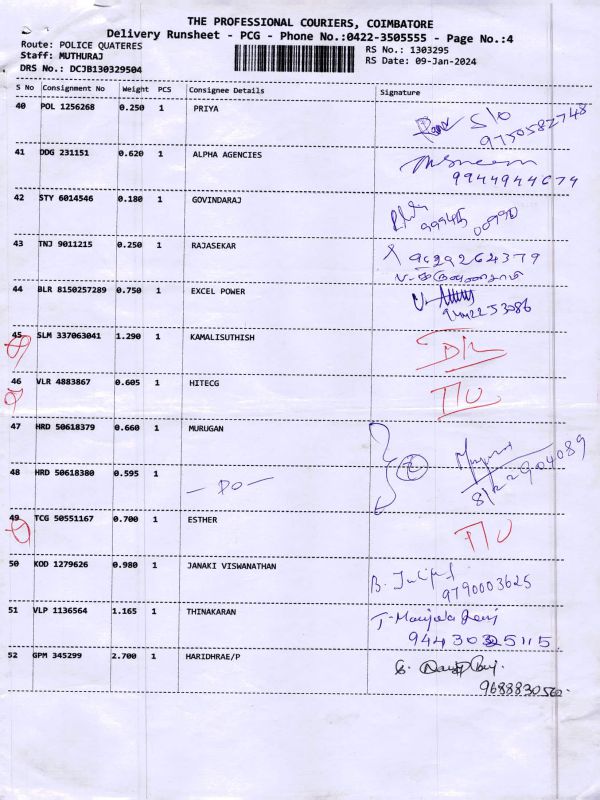 THE PROFESSIONAL COURIERS, COIMBATORE
Delivery Runsheet - PCG - Phone No.:0422-3505555 - Page No.:4
Route: POLICE QUATERES RS No.: 1303295
Staff: MUTHURAJ RS Date: 09-Jan-2024
DRS No.: DCJB130329504
S No Consignment No Weight PCS Consignee Details Signature
40 POL 1256268 0.250 1 PRIYA
S/O
9750582748
41 DDG 231151 0.620 1 ALPHA AGENCIES
9944944674
42 STY 6014546 0.180 1 GOVINDARAJ
99945 00990
43 TNJ 9011215 0.250 1 RAJASEKAR
9629264379
44 BLR 8150257289 0.750 1 EXCEL POWER
9442253086
45 SLM 337063041 1.290 1 KAMALISUTHISH
D/L
46 VLR 4883867 0.605 1 HITECG
T/U
47 HRD 50618379 0.660 1 MURUGAN
2
8122904089
48 HRD 50618380 0.595 1 — DO —
49 TCG 50551167 0.700 1 ESTHER
T/U
50 KOD 1279626 0.980 1 JANAKI VISWANATHAN
9790003625
51 VLP 1136564 1.165 1 THINAKARAN
9443025115
52 GPM 345299 2.700 1 HARIDHRAE/P
9688830560